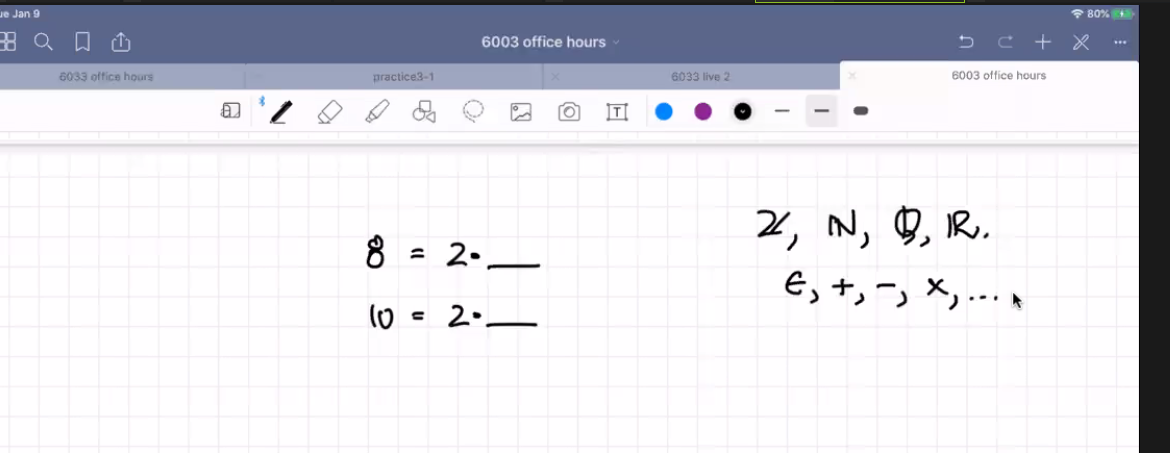 ue Jan 9
80%
6003 office hours
6033 office hours
practice3-1
6033 live 2
6003 office hours
T
8 = 2· ___
10 = 2· ___
ℤ, ℕ, ℚ, ℝ.
∈, +, -, ×, ...